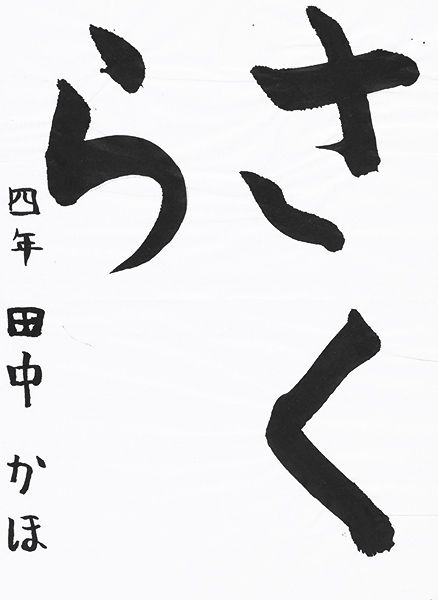 さく
ら
四年 田中 かほ